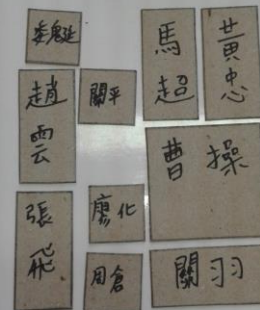 魏延
馬超
黃忠
趙雲
關平
曹操
張飛
廖化
周倉
關羽